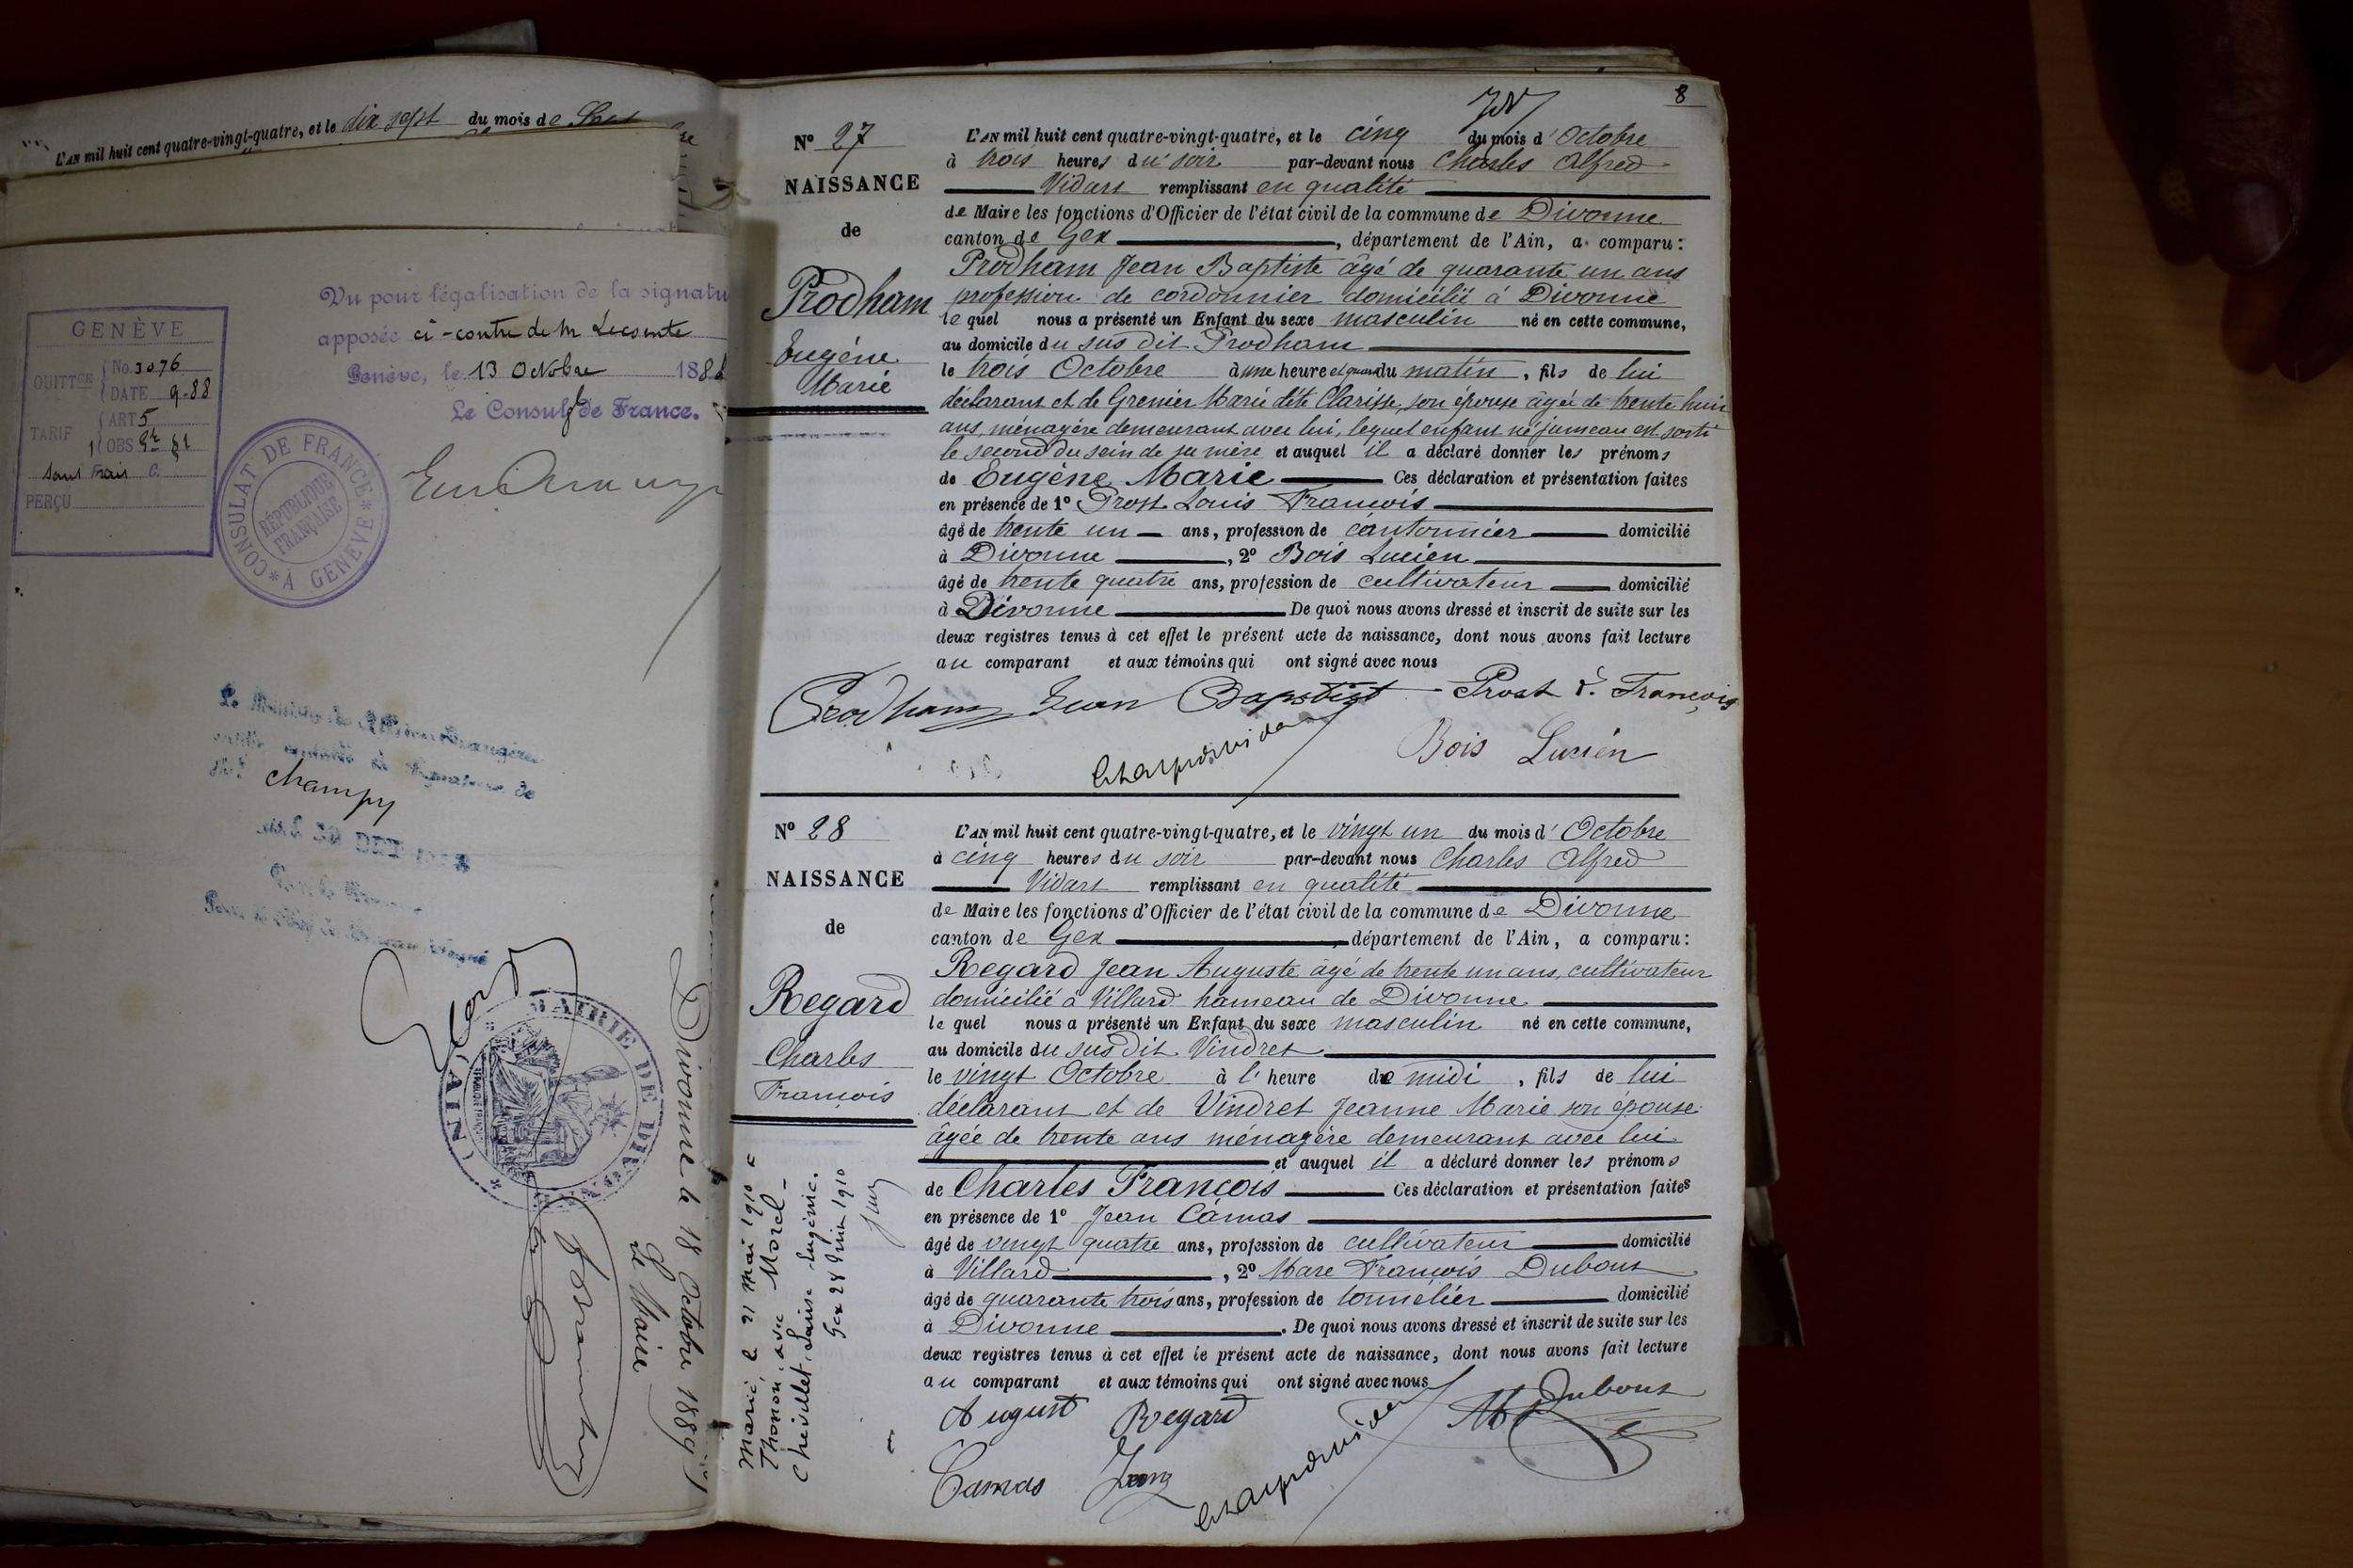 L'AN mil huit cent quatre-vingt-quatre, et le dix sept du mois de
GENÈVE
QUITTCE No. 3076
DATE 9-88
TARIF ART 5
OBS
PERÇU
Vu pour légalisation de la signatu
apposée ci-contre de Mr Lecomte
Genève, le 13 Octobre 188
Le Consul de France.
CONSULAT DE FRANCE * À GENÈVE *
RÉPUBLIQUE
FRANÇAISE
champy
MAIRIE DE DIVONNE * (AIN) *
Divonne le 18 Octobre 1889
Le Maire
8
N° 27
NAISSANCE
de
Prodham
Eugène
Marie
L'AN mil huit cent quatre-vingt-quatre, et le cinq du mois d'Octobre
à trois heures du soir par-devant nous Charles Alfred
Vidart remplissant en qualité
de Maire les fonctions d'Officier de l'état civil de la commune de Divonne
canton de Gex, département de l'Ain, a comparu:
Prodham Jean Baptiste âgé de quarante un ans
profession de cordonnier domicilié à Divonne
lequel nous a présenté un Enfant du sexe masculin né en cette commune,
au domicile du sus dit Prodham
le trois Octobre à une heure et quart du matin, fils de lui
déclarant et de Grenier Marie dite Clarisse, son épouse âgée de trente huit
ans, ménagère demeurant avec lui, lequel enfant né jumeau est sorti
le second du sein de sa mère et auquel il a déclaré donner les prénoms
de Eugène Marie Ces déclaration et présentation faites
en présence de 1° Prost Louis François
âgé de trente un ans, profession de cantonnier domicilié
à Divonne, 2° Bois Lucien
âgé de trente quatre ans, profession de cultivateur domicilié
à Divonne De quoi nous avons dressé et inscrit de suite sur les
deux registres tenus à cet effet le présent acte de naissance, dont nous avons fait lecture
au comparant et aux témoins qui ont signé avec nous
Prodham Jean Baptist Prost L. François
Bois Lucien
N° 28
NAISSANCE
de
Regard
Charles
François
L'AN mil huit cent quatre-vingt-quatre, et le vingt un du mois d'Octobre
à cinq heures du soir par-devant nous Charles Alfred
Vidart remplissant en qualité
de Maire les fonctions d'Officier de l'état civil de la commune de Divonne
canton de Gex, département de l'Ain, a comparu:
Regard Jean Auguste âgé de trente un ans, cultivateur
domicilié à Villard hameau de Divonne
lequel nous a présenté un Enfant du sexe masculin né en cette commune,
au domicile du sus dit Vindret
le vingt Octobre à l'heure de midi, fils de lui
déclarant et de Vindret Jeanne Marie son épouse
âgée de trente ans ménagère demeurant avec lui
et auquel il a déclaré donner les prénoms
de Charles François Ces déclaration et présentation faites
en présence de 1° Jean Camas
âgé de vingt quatre ans, profession de cultivateur domicilié
à Villard, 2° Marc François Dubout
âgé de quarante trois ans, profession de tonnelier domicilié
à Divonne. De quoi nous avons dressé et inscrit de suite sur les
deux registres tenus à cet effet le présent acte de naissance, dont nous avons fait lecture
au comparant et aux témoins qui ont signé avec nous
August Regard Dubout
Camas Jean
Marié le 21 mai 1910 à
Thonon avec Morel-
Chevillet, Louise Eugénie.
Gex 28 Juin 1910